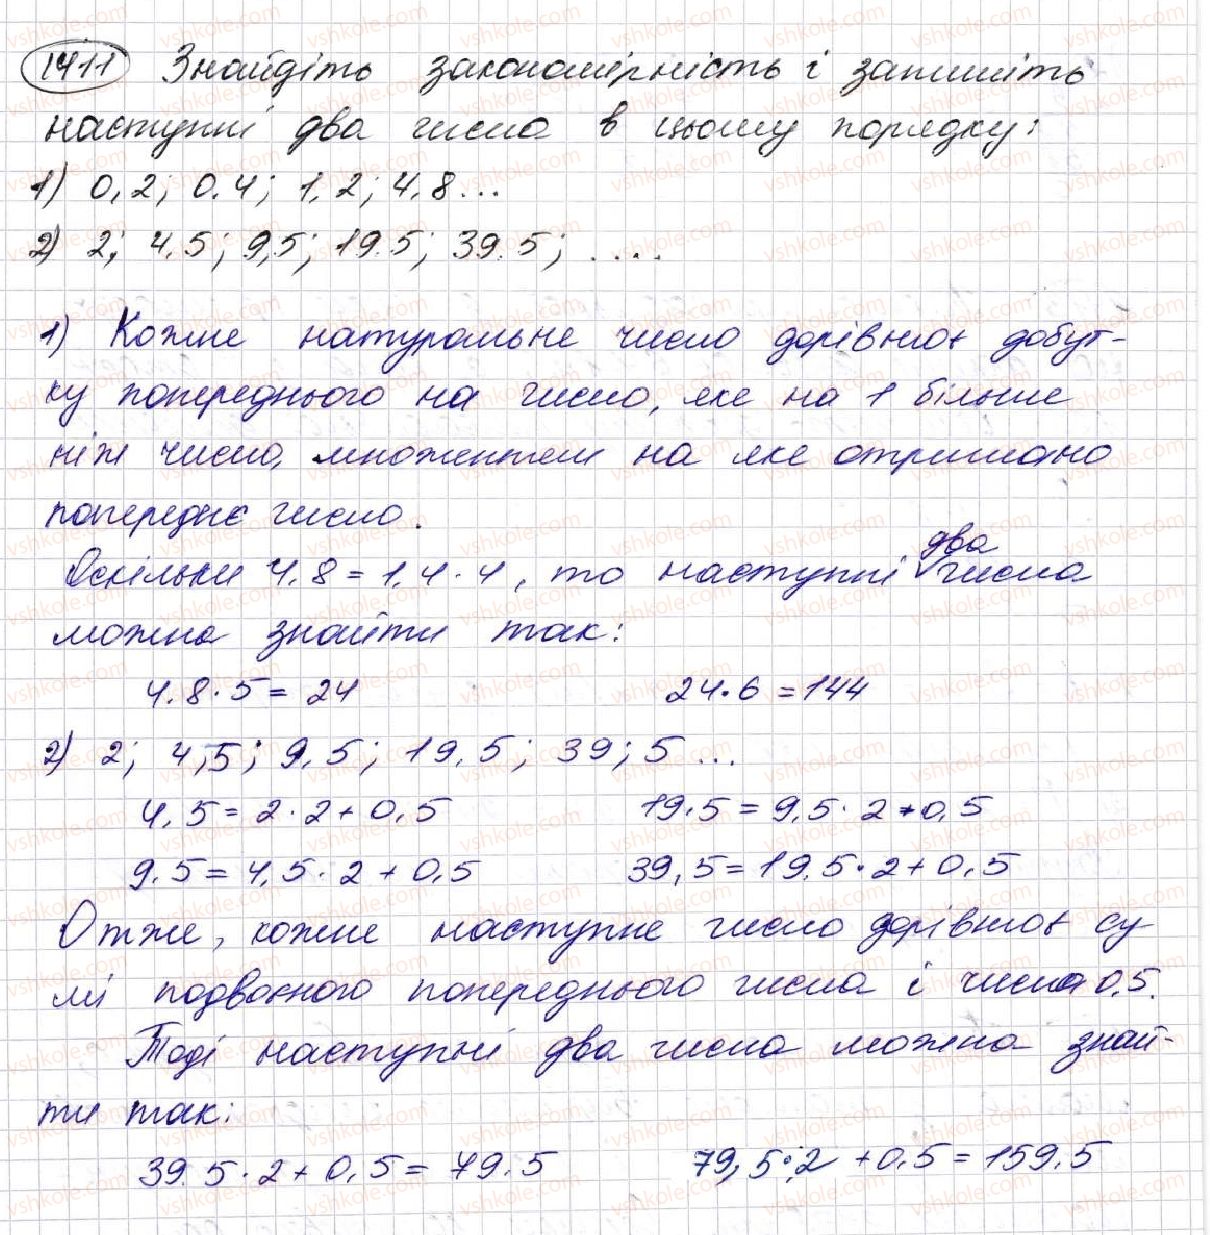 1411 Знайдіть закономірність і запишіть
наступні два числа в цьому порядку:
1) 0,2; 0.4; 1,2; 4,8...
2) 2; 4,5; 9,5; 19.5; 39.5; ....
1) Кожне натуральне число дорівнює добут-
ку попереднього на число, яке на 1 більше
ніж число, множенням на яке отримано
попереднє число.
Оскільки 4.8 = 1,4 · 4, то наступні два числа
можна знайти так:
4.8 · 5 = 24 24 · 6 = 144
2) 2; 4,5; 9,5; 19,5; 39; 5 ...
4,5 = 2 · 2 + 0,5 19,5 = 9,5 · 2 + 0,5
9.5 = 4,5 · 2 + 0,5 39,5 = 19,5 · 2 + 0,5
Отже, кожне наступне число дорівнює су
мі подвоєного попереднього числа і числа 0,5.
Тоді наступні два числа можна знай-
ти так:
39.5 · 2 + 0,5 = 79.5 79,5 · 2 + 0,5 = 159,5